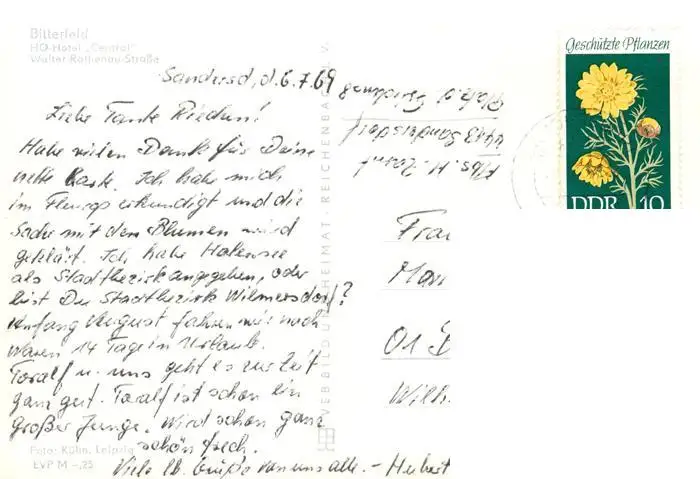 Bitterfeld
HO-Hotel „Central"
Walter-Rathenau-Straße
Sandersd, d. 6.7.69
Liebe Tante
Habe vielen Dank für Deine
nette Karte. Ich habe mich
im Fleurop erkundigt und die
Sache mit dem Blumen wird
geklärt. Ich habe Halensee
als Stadtbezirk angegeben, oder
bist Du Stadtbezirk Wilmersdorf?
Anfang August fahren wir nach
Waren 14 Tage in Urlaub.
Toralf u. uns geht es zur Zeit
ganz gut. Toralf ist schon ein
großer Junge. Wird schon ganz
schön frech.
Viele lb. Grüße von uns alle. – Herbert
Foto: Kühn, Leipzig
EVP M -,25
VEB BILD U. HEIMAT · REICHENBACH
Abs. H.
4413 Sandersdorf
Geschützte Pflanzen
DDR 10
Frau
01
Wilh